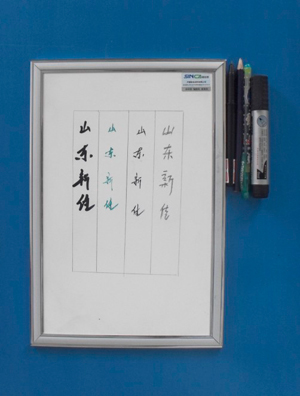 山东新佳
山东新佳
山东新佳
山东新佳